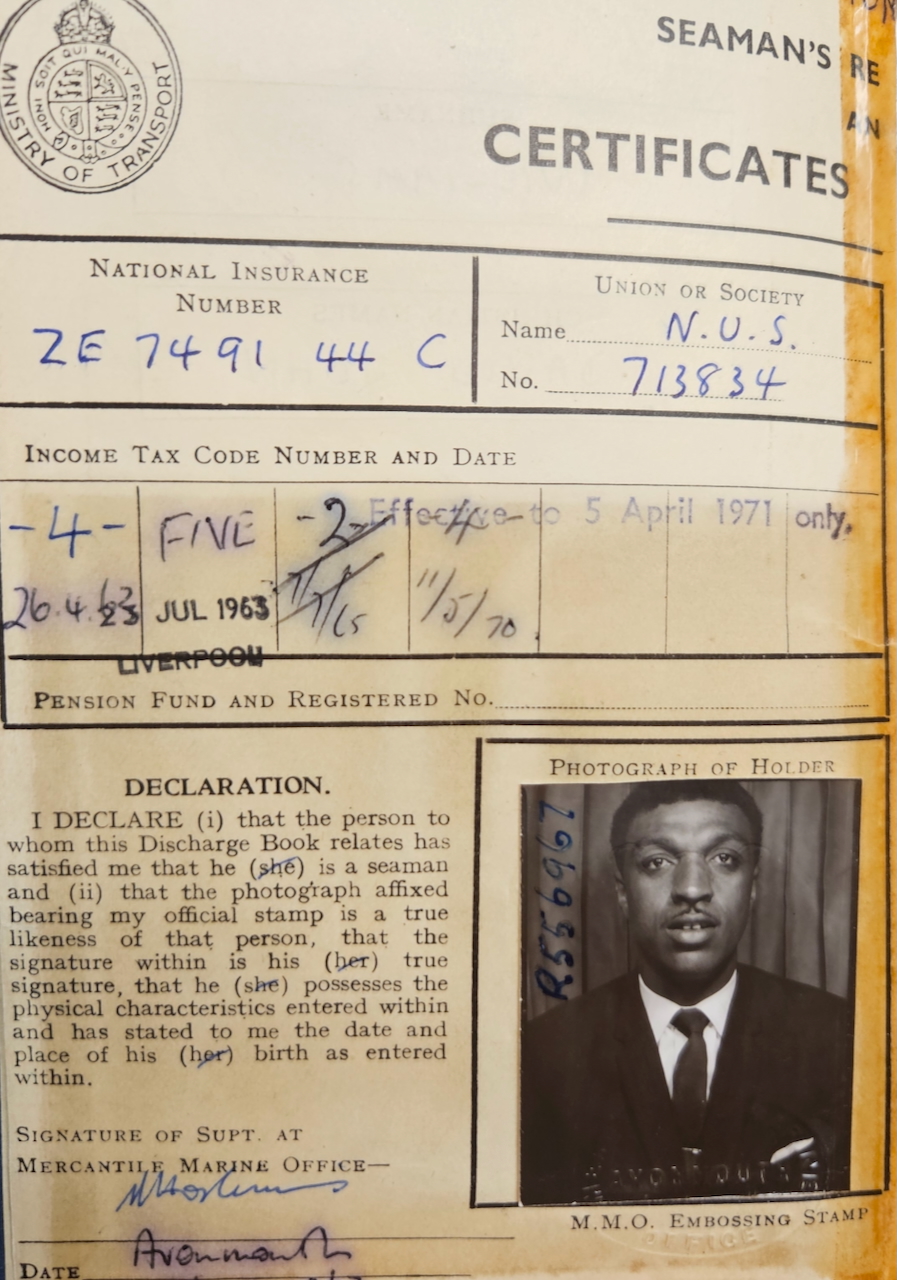 MINISTRY OF TRANSPORT
HONI SOIT QUI MAL Y PENSE
SEAMAN'S RE
AN
CERTIFICATES
NATIONAL INSURANCE
NUMBER
ZE 7491 44 C
UNION OR SOCIETY
Name N.U.S.
No. 713834
INCOME TAX CODE NUMBER AND DATE
Effective to 5 April 1971 only.
-4- FIVE -2- -4-
26.4.63 JUL 1963 11/5/70
LIVERPOOL
PENSION FUND AND REGISTERED No.
DECLARATION.
I DECLARE (i) that the person to
whom this Discharge Book relates has
satisfied me that he (she) is a seaman
and (ii) that the photograph affixed
bearing my official stamp is a true
likeness of that person, that the
signature within is his (her) true
signature, that he (she) possesses the
physical characteristics entered within
and has stated to me the date and
place of his (her) birth as entered
within.
SIGNATURE OF SUPT. AT
MERCANTILE MARINE OFFICE—
Avonmouth
DATE
PHOTOGRAPH OF HOLDER
R556967
AVONMOUTH
M.M.O. EMBOSSING STAMP
OFFICE